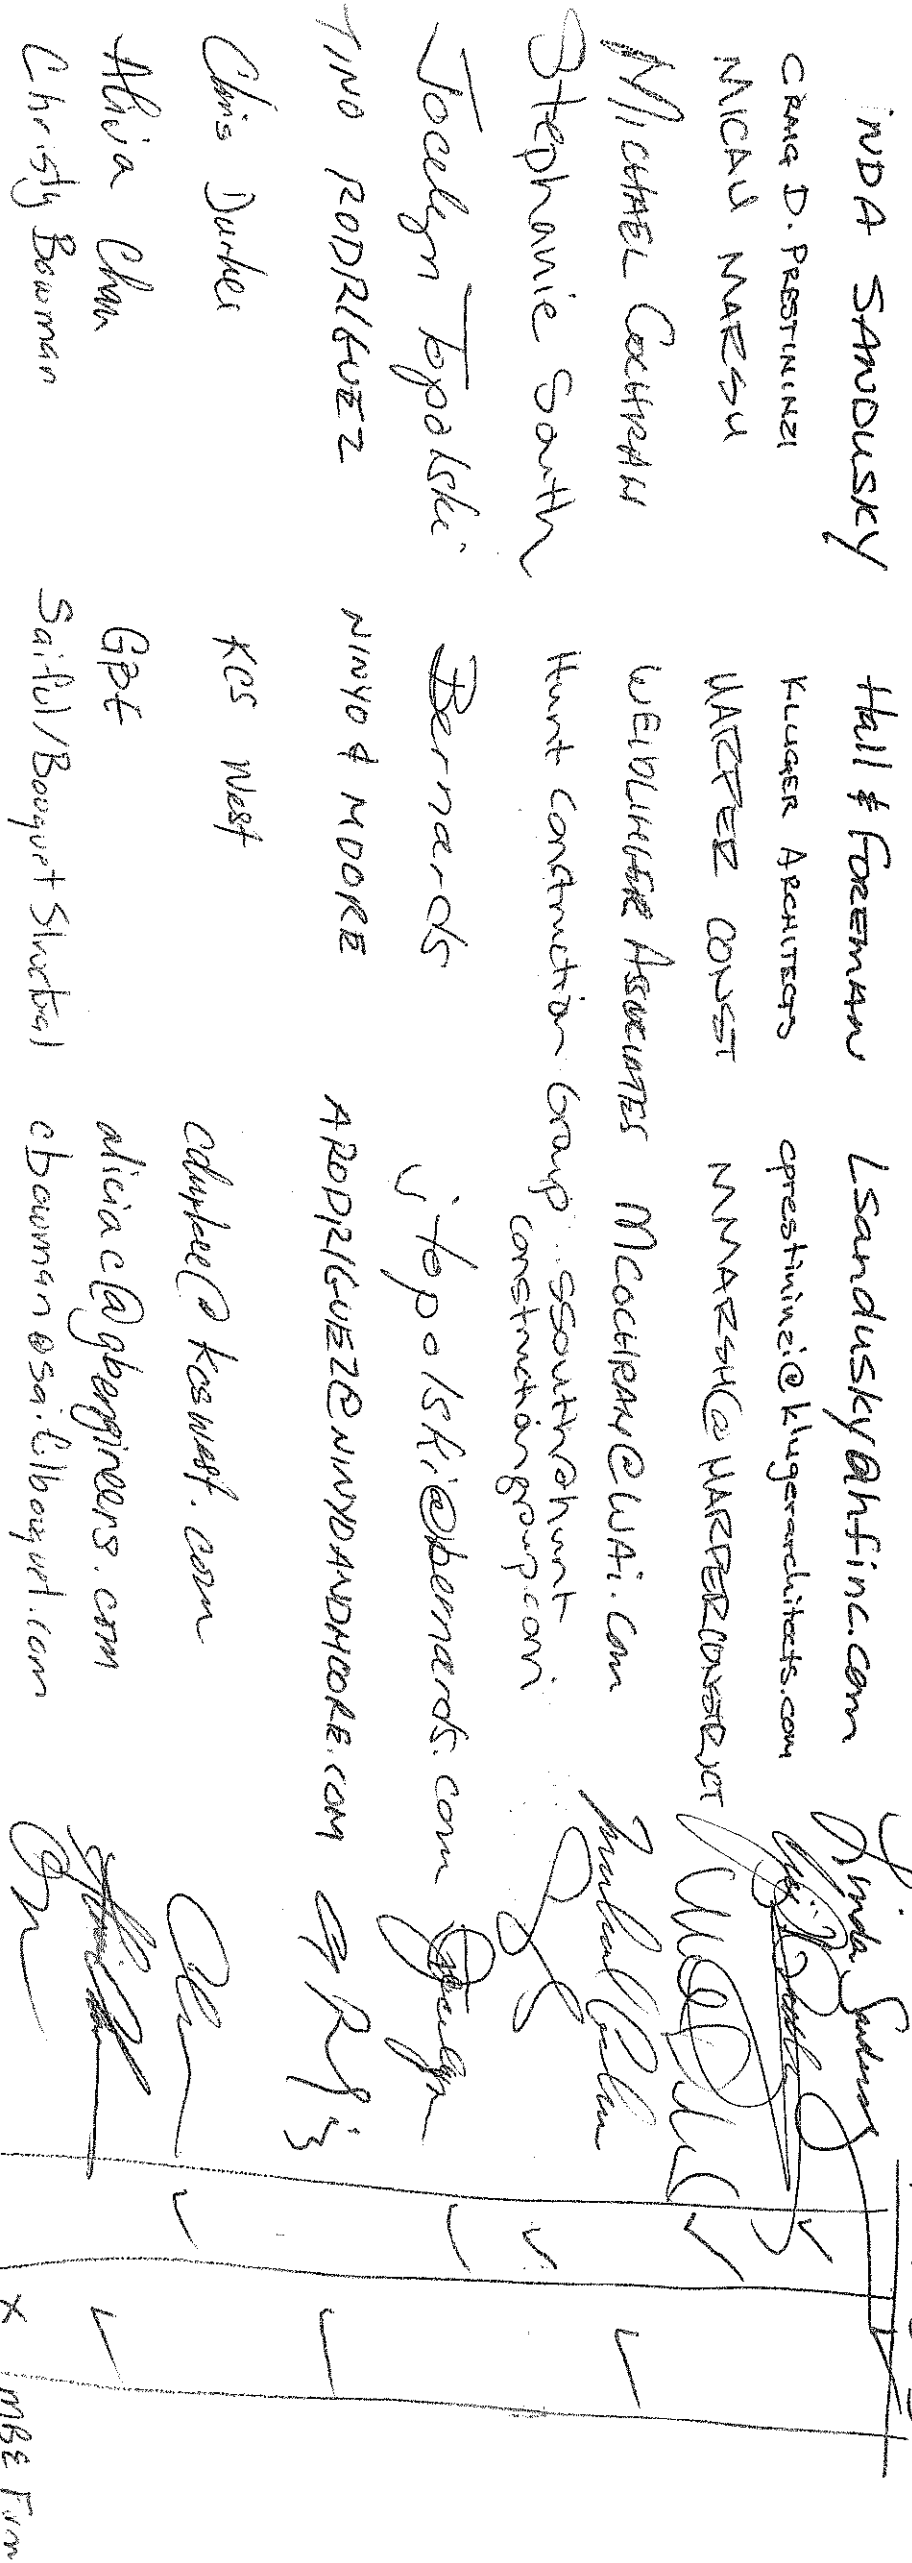 INDA SANDUSKY Hall & FOREMAN Lsandusky@hfinc.com Linda Sandusky
CRAIG D. PRESTININZI KLUGER ARCHITECTS cprestininzi@klugerarchitects.com
MICAH MARSH HARPER CONST MMARSH@HARPERCONSTR.CT
MICHAEL COCHRAN WEIDLINGER ASSOCIATES MCOCHRAN@WAI.COM
Stephanie South Hunt Construction Group ssouth@hunt
constructiongroup.com
Jocelyn Topolski Bernards jtopolski@bernards.com
TINO RODRIGUEZ NINYO & MOORE ARODRIGUEZ@NINYOANDMOORE.COM
Chris Durkee KCS West cdurkee@kcswest.com
Alicia Chan GBE aliciac@gbengineers.com
Christy Bowman Saiful/Bouquet Structural cbowman@saifulbouquet.com X MBE Firm